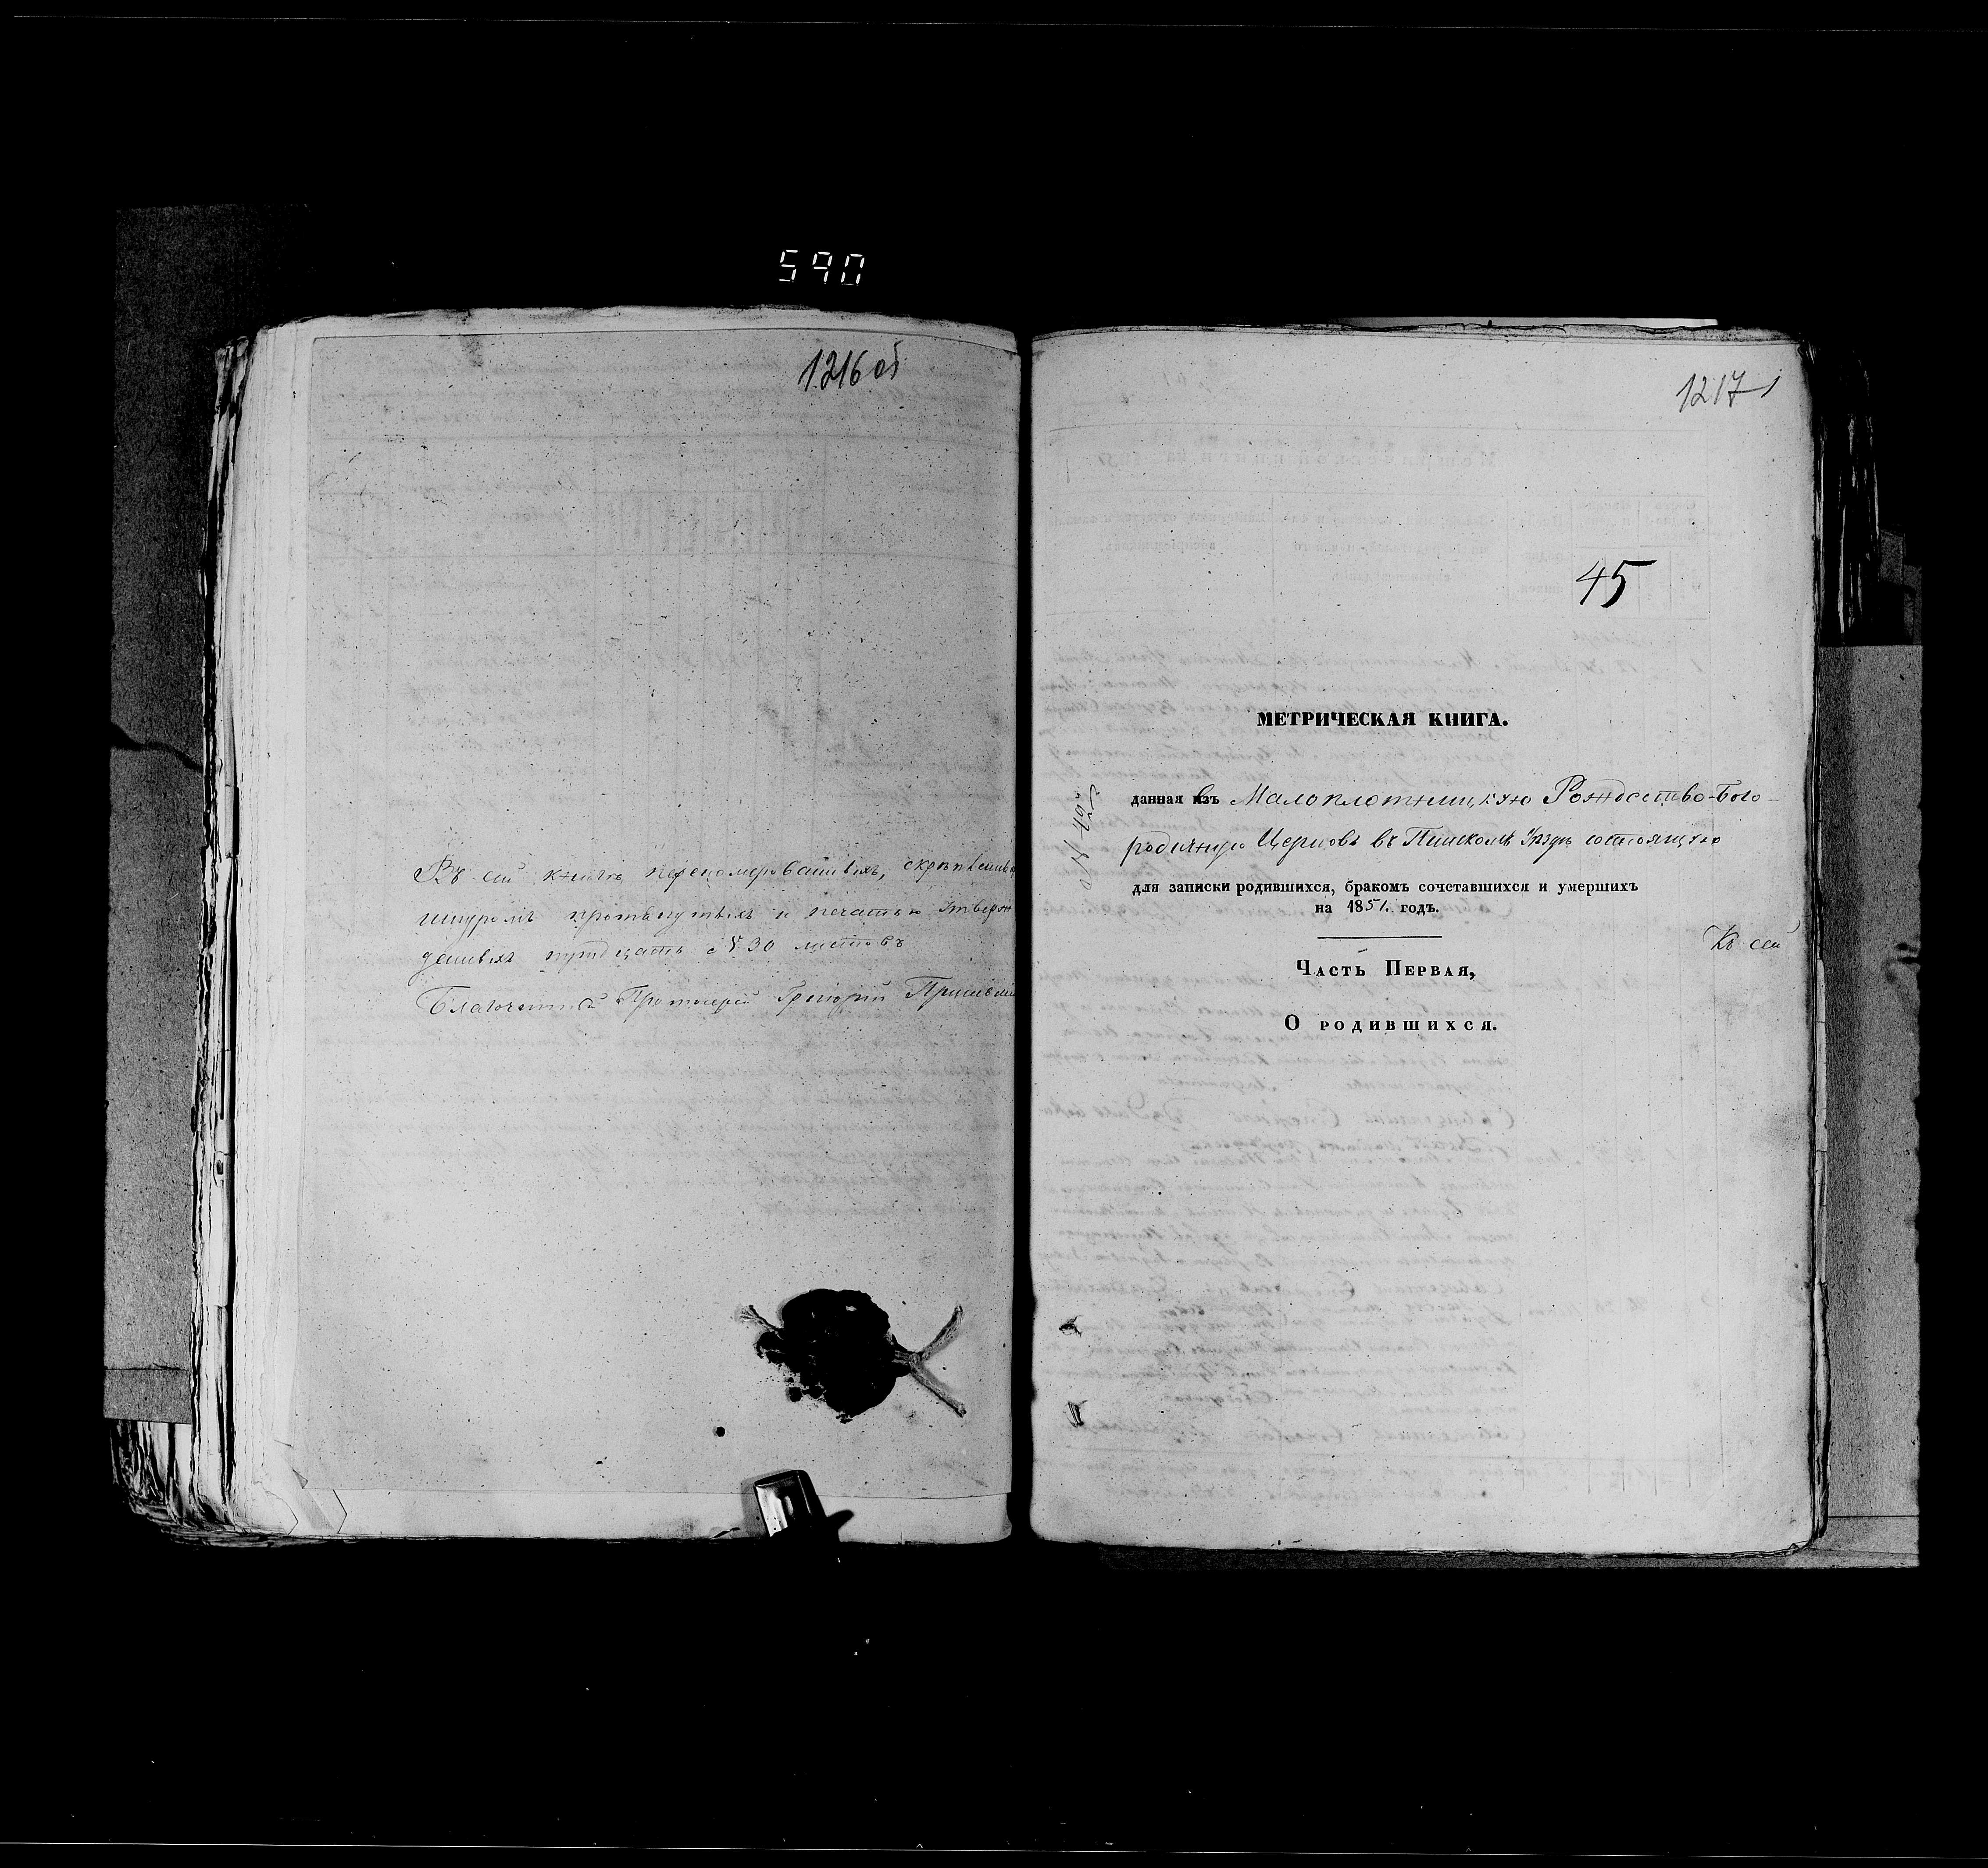 590
1216 об
Въ сей книге перепомерованныхъ, скрепленныхъ
шнуромъ протянутыхъ и печатью утверж
денныхъ тридцать № 30 листовъ
Благочинный Протоиерей Григорій
1217 1
45
МЕТРИЧЕСКАЯ КНИГА.
данная въ Малоплотницкую Рождество-Бого-
родичную Церковь въ Пинскомъ Уѣздѣ состоящую
для записки родившихся, бракомъ сочетавшихся и умершихъ
на 1851. годъ.
Къ сей
Часть Первая,
О родившихся.